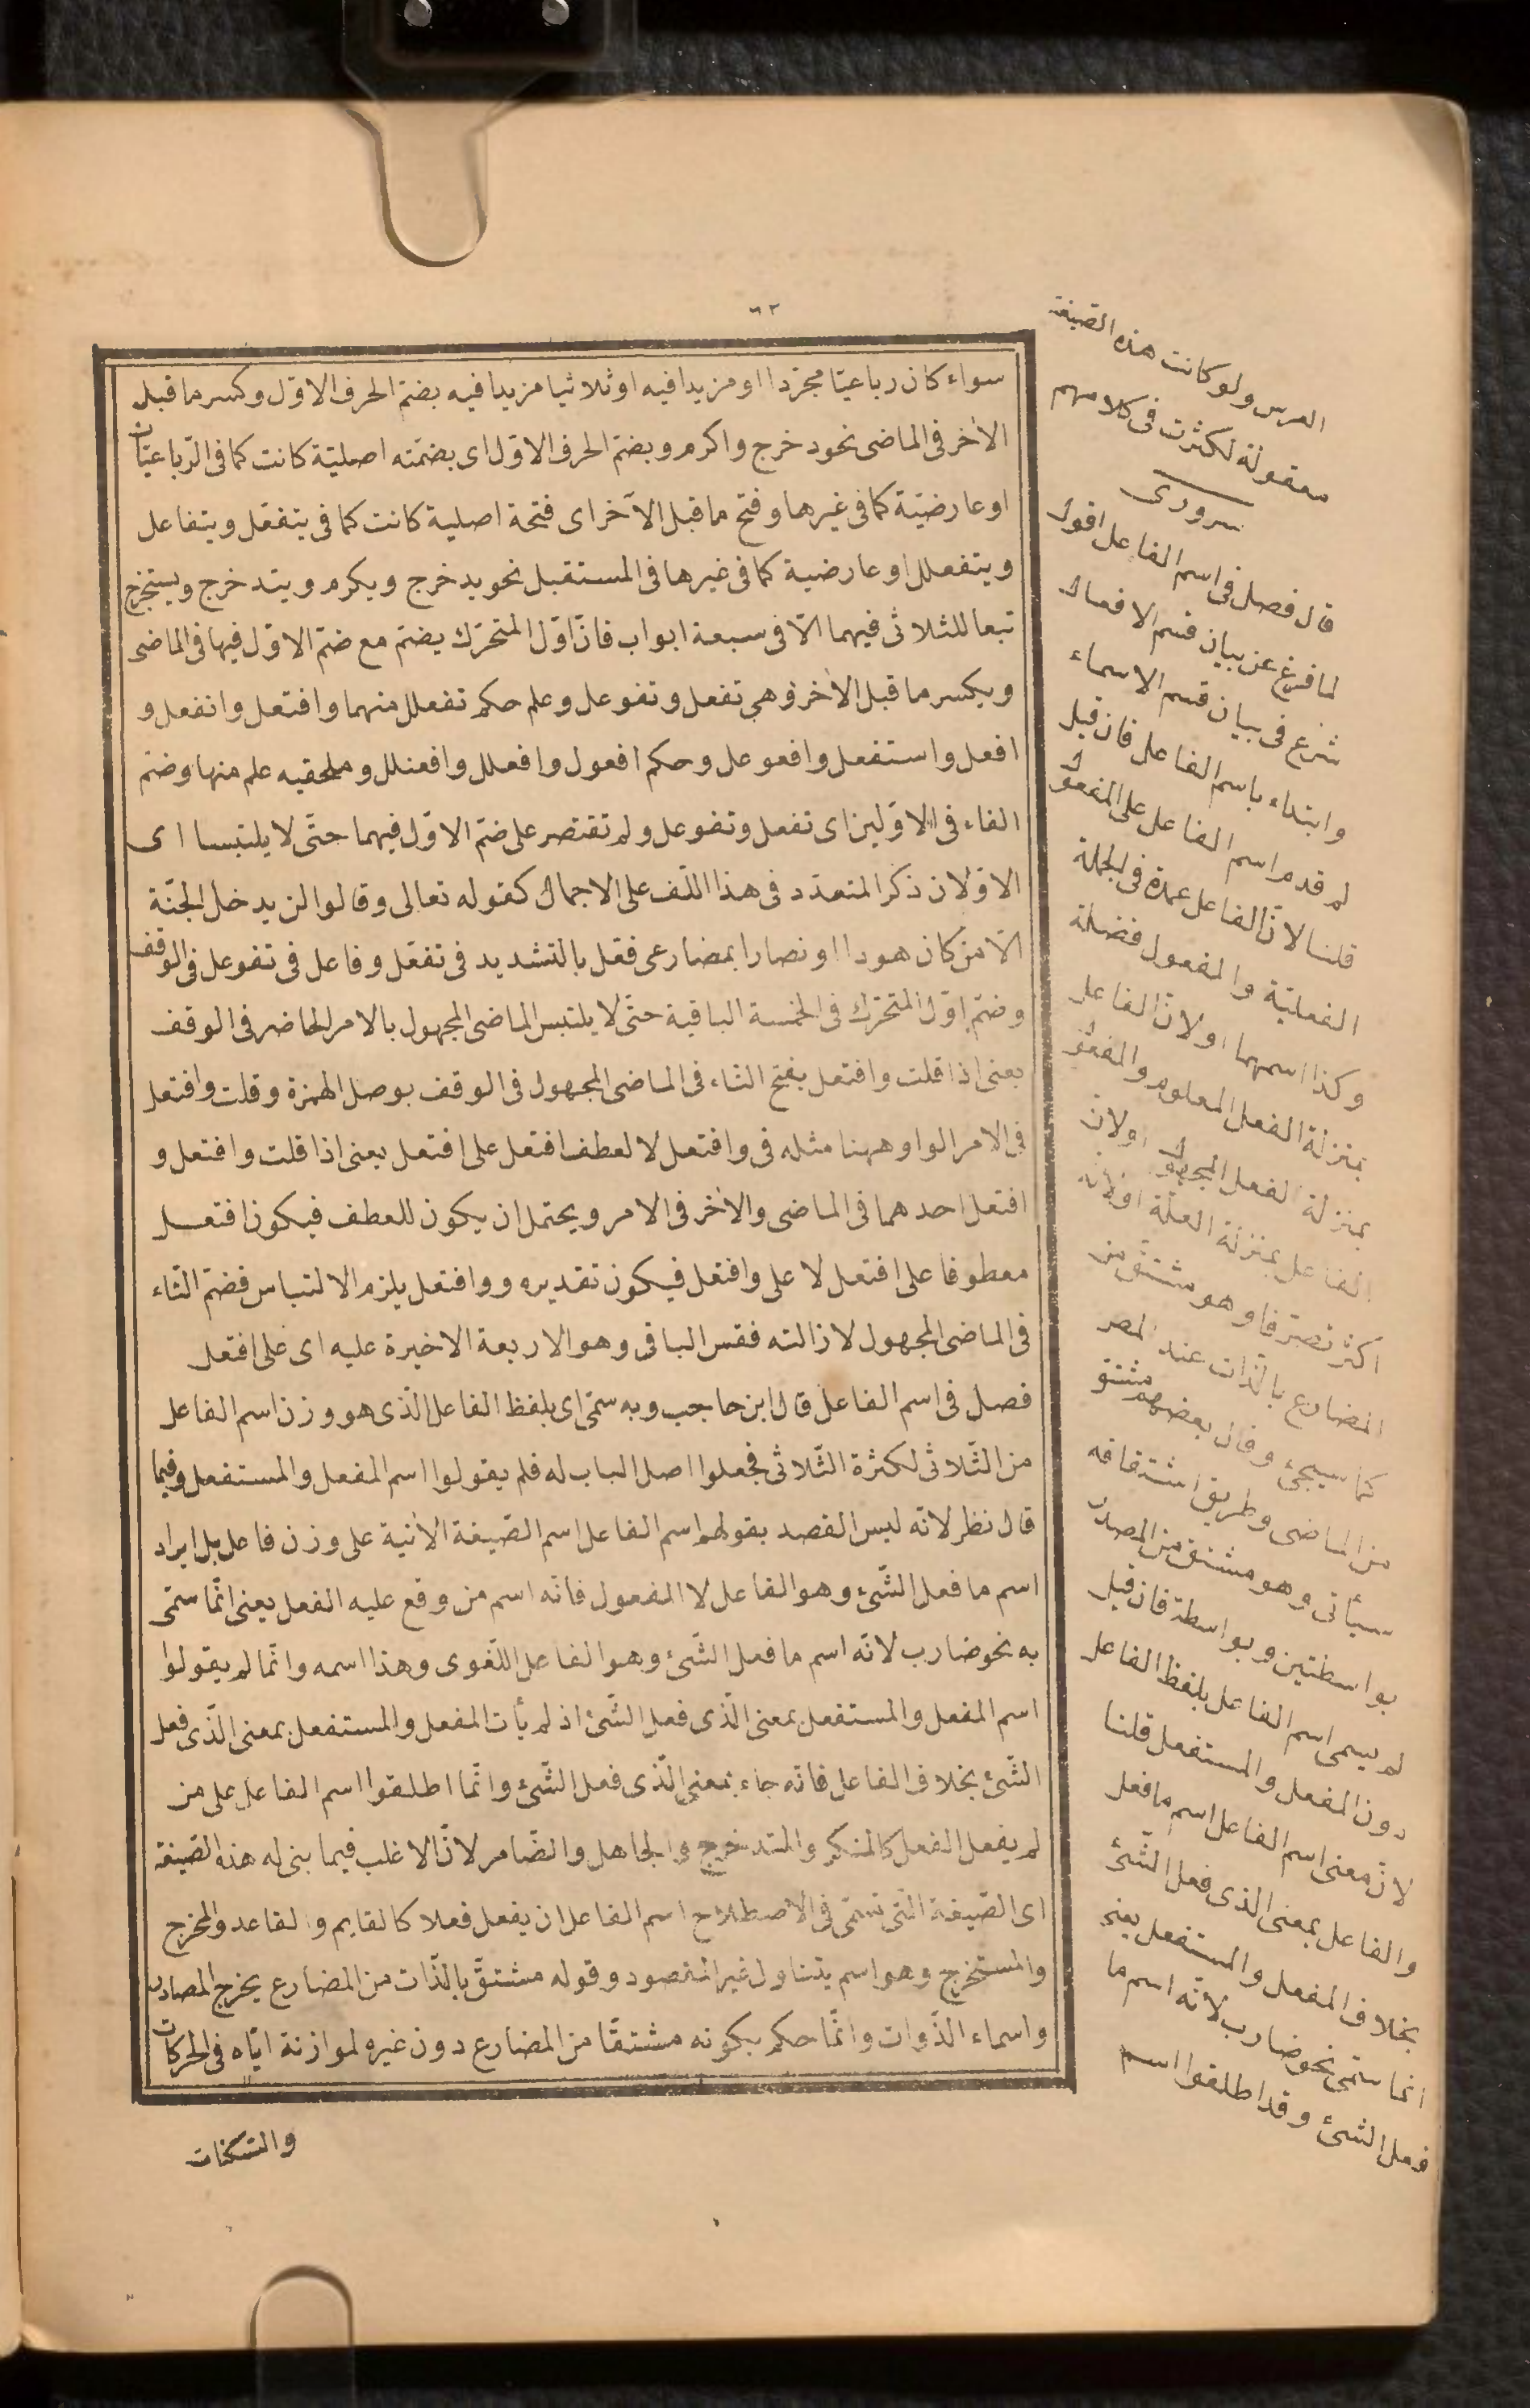 ٦٢
سواء كان رباعيّا مجرّدا او مزيدا فيه او ثلاثيا مزيدا فيه بضمّ الحرف الاوّل وكسر ما قبل
الآخر فى الماضى نحو دخرج واكرم وبضمّ الحرف الاوّل اى بضمّته اصليّة كانت كما فى الرّباعيّات
او عارضيّة كما فى غيرها وفتح ما قبل الآخر اى فتحة اصلية كانت كما فى يتفعّل ويتفاعل
ويتفعلل او عارضية كما فى غيرها فى المستقبل نحو يدخرج ويكرم ويتدخرج ويستخرج
تبعا للثلاثى فيهما الّا فى سبعة ابواب فانّ اوّل المتحرّك يضمّ مع ضمّ الاوّل فيها فى الماضى
ويكسر ما قبل الآخر وهى تفعل وتفوعل وعلم حكم تفعلل منهما وافتعل وانفعل و
افعل واستفعل وافعوعل وحكم افعول وافعلل وافعنلل وملحقيه علم منها وضمّ
الفاء فى الاوّلين اى تفعل وتفوعل ولم تقتصر على ضمّ الاوّل فيهما حتّى لا يلتبسا اى
الاوّلان ذكر المتعدّد فى هذا اللّف على الاجمال كقوله تعالى وقالوا لن يدخل الجنّة
الّا من كان هودا او نصارا بمضارعى فعّل بالتشديد فى تفعّل وفاعل فى تفوعل فى الوقف
وضمّ اوّل المتحرّك فى الخمسة الباقية حتّى لا يلتبس الماضى المجهول بالامر الحاضر فى الوقف
يعنى اذا قلت وافتعل بفتح التاء فى الماضى المجهول فى الوقف بوصل الهمزة وقلت وافتعل
فى الامر الواو ههنا مثله فى وافتعل لا لعطف افتعل على افتعل يعنى اذا قلت وافتعل و
افتعل احدهما فى الماضى والآخر فى الامر ويحتمل ان يكون للعطف فيكون افتعل
معطوفا على افتعل لا على وافتعل فيكون تقديره ووافتعل يلزم الالتباس فضمّ التّاء
فى الماضى المجهول لازالته فقس الباقى وهو الاربعة الاخيرة عليه اى على افتعل
فصل فى اسم الفاعل قال ابن حاجب وبه سمّى اى بلفظ الفاعل الّذى هو وزن اسم الفاعل
من الثّلاثى لكثرة الثّلاثى فجعلوا اصل الباب له فلم يقولوا اسم المفعل والمستفعل وفيما
قال نظر لانّه ليس القصد بقولهم اسم الفاعل اسم الصّيغة الآتية على وزن فاعل بل ايراد
اسم ما فعل الشّئ وهو الفاعل لا المفعول فانّه اسم من وقع عليه الفعل يعنى انّما سمّى
به نحو ضارب لانّه اسم ما فعل الشّئ وهو الفاعل اللّغوى وهذا اسمه وانّما لم يقولوا
اسم المفعل والمستفعل بمعنى الّذى فعل الشّئ اذ لم يأت المفعل والمستفعل بمعنى الّذى فعل
الشّئ بخلاف الفاعل فانّه جاء بمعنى الّذى فعل الشّئ وانّما اطلقوا اسم الفاعل على من
لم يفعل الفعل كالمنكر والمتدخرج والجاهل والضّامر لانّ الاغلب فيما بنى له هذه الصّيغة
اى الصّيغة الّتى تسمّى فى الاصطلاح اسم الفاعل ان يفعل فعلا كالقايم والقاعد والمخرج
والمستخرج وهو اسم يتناول غير المقصود وقوله مشتقّ بالذّات من المضارع يخرج المصادر
واسماء الذّوات وانّما حكم بكونه مشتقّا من المضارع دون غيره لموازنة ايّاه فى الحركات
والسّكنات
العرس ولو كانت هذه الصّيغة
معقولة لكثرت فى كلامهم
سرورى
قال فصل فى اسم الفاعل اقول
لما فرغ عن بيان قسم الافعال
شرع فى بيان قسم الاسماء
وابتداء باسم الفاعل فان قيل
لم قدم اسم الفاعل على المفعول
قلنا لانّ الفاعل عمدة فى الجملة
الفعليّة والمفعول فضلة
وكذا اسمهما اولانّ الفاعل
بمنزلة الفعل المعلوم والمفعول
بمنزلة الفعل المجهول اولانّ
الفاعل بمنزلة العلّة اولانّه
اكثر تصرّفا وهو مشتقّ من
المضارع بالذّات عند المصر
كما سيجئ وقال بعضهم مشتق
من الماضى وطريق اشتقاقه
سيأتى وهو مشتق من المصدر
بواسطتين وبواسطة فان قيل
لم يسمى اسم الفاعل بلفظ الفاعل
دون المفعل والمستفعل قلنا
لانّ معنى اسم الفاعل اسم ما فعل
والفاعل بمعنى الذى فعل الشّئ
بخلاف المفعل والمستفعل يعنى
انما سمّى نحو ضارب لانّه اسم ما
فعل الشئ وقد اطلقوا اسم